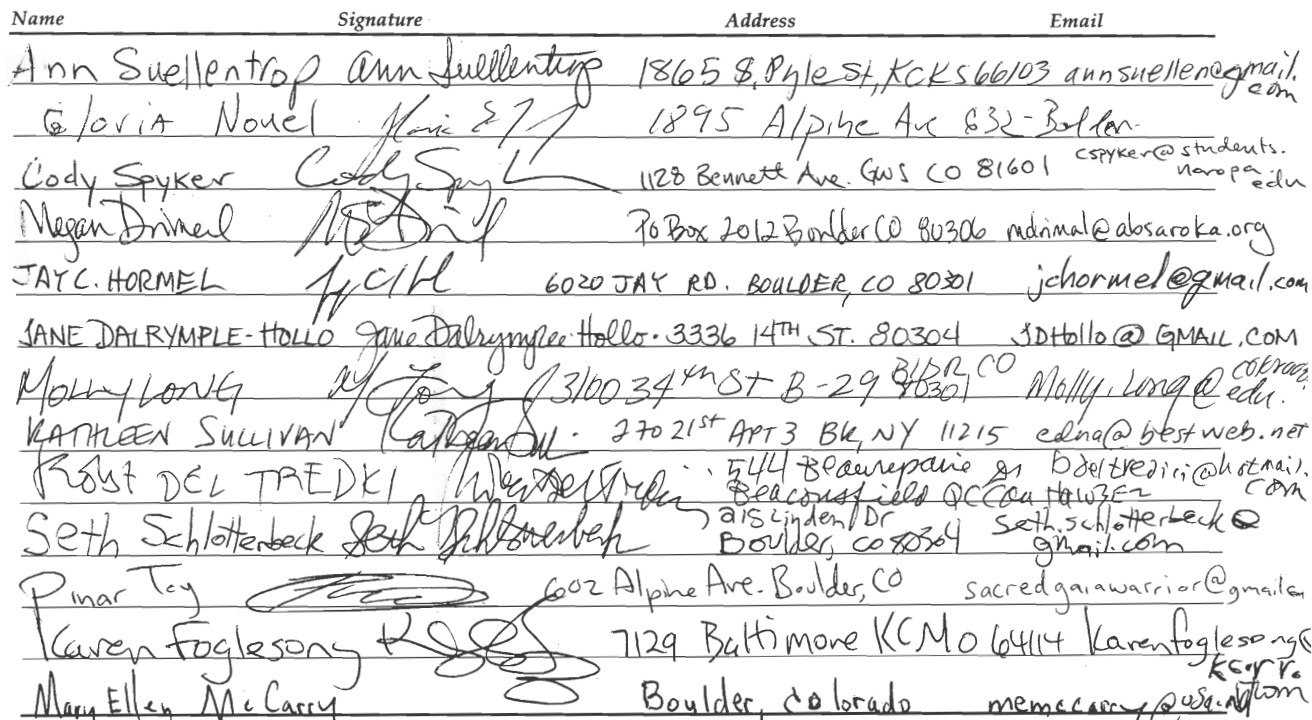 Name Signature Address Email
Ann Suellentrop Ann Suellentrop 1865 S. Pyle St, KCKS 66103 annsuellen@gmail.com
Gloria Nouel 1895 Alpine Ave
Cody Spyker Cody Spy 1128 Bennett Ave. GWS CO 81601 cspyker@students.naropa.edu
Megan Drimal PO Box 2012 Boulder CO 80306 mdrimal@absaroka.org
JAY C. HORMEL 6020 JAY RD. BOULDER, CO 80301 jchormel@gmail.com
JANE DALRYMPLE-HOLLO Jane Dalrymple-Hollo 3336 14TH ST. 80304 JDHollo@GMAIL.COM
MOLLY LONG 3100 34th St B-29 BLDR, CO 80301 Molly.Long@colorado.edu
KATHLEEN SULLIVAN 270 21st APT 3 BK, NY 11215 edna@bestweb.net
DEL TREDICI 544 Beaurepaire Beaconsfield QC bdeltredici@hotmail.com
Seth Schlotterbeck Seth Schlotterbeck Linden Dr Boulder, CO 80304 seth.schlotterbeck@gmail.com
Pinar 602 Alpine Ave. Boulder, CO sacredgaiawarrior@gmail.com
Karen Foglesong 7129 Baltimore KCMO 64114 karenfoglesong@
Mary Ellen McCarry Boulder, Colorado